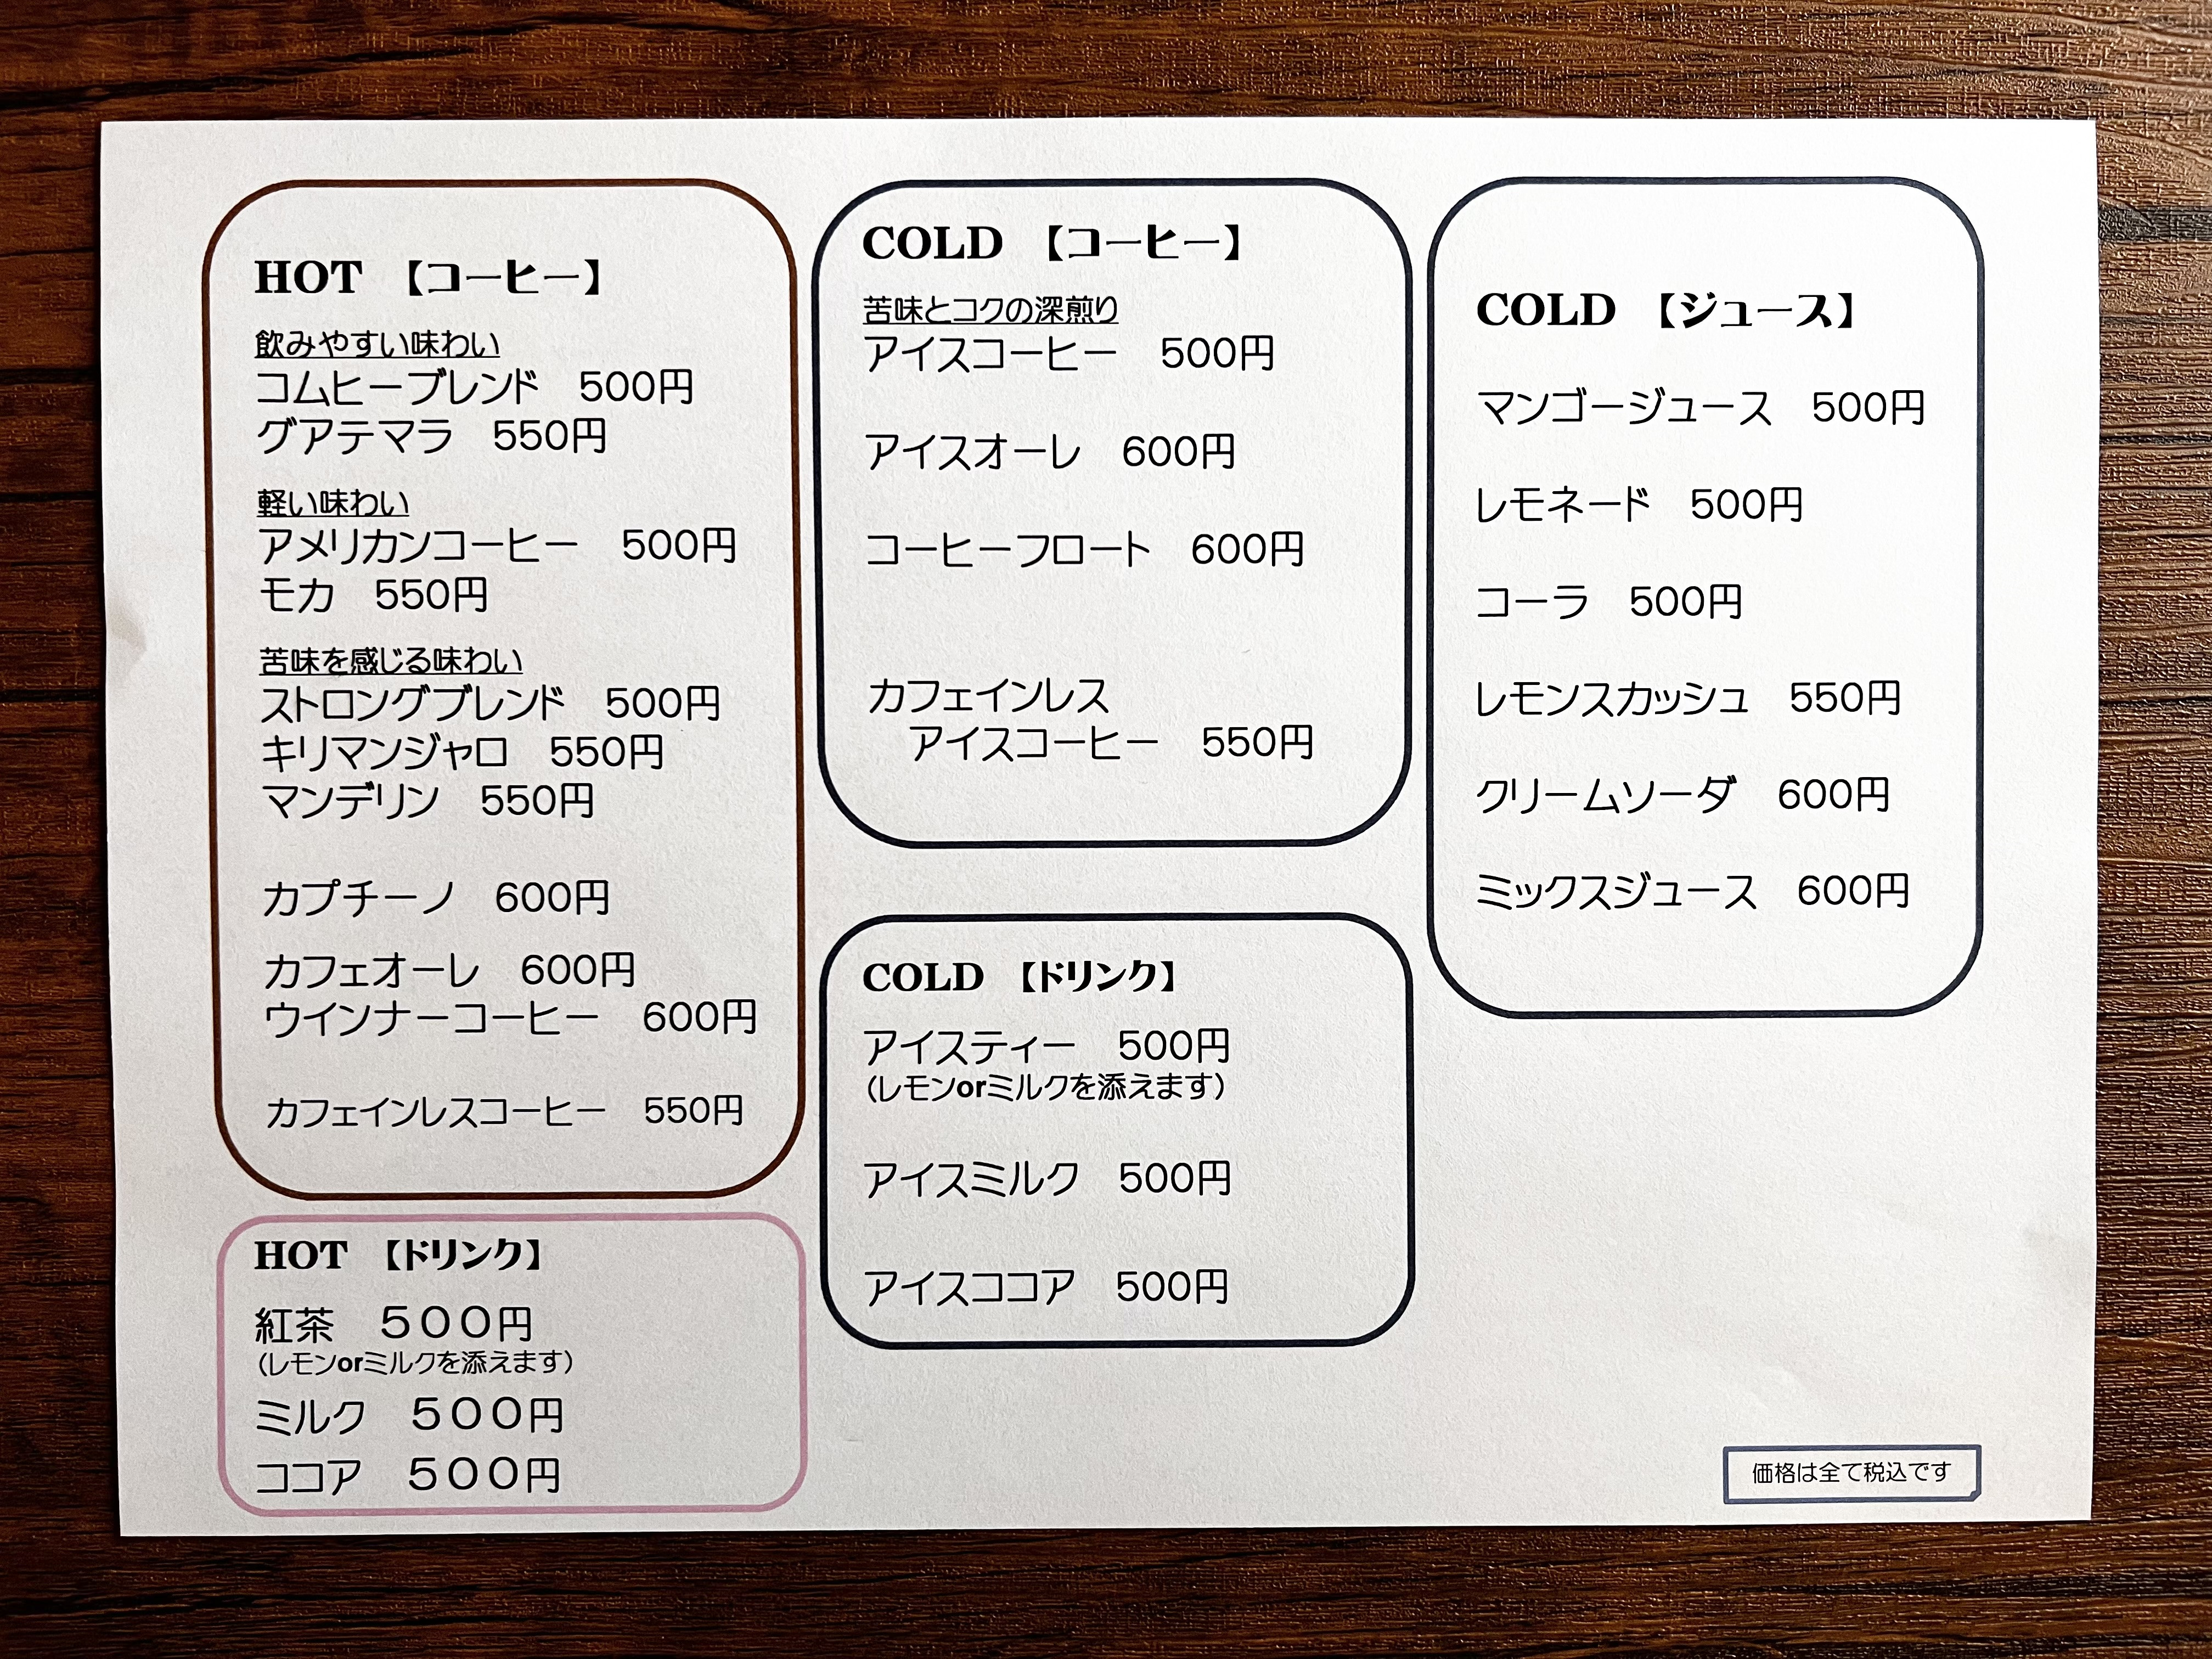 HOT 【コーヒー】
飲みやすい味わい
コムヒーブレンド 500円
グアテマラ 550円
軽い味わい
アメリカンコーヒー 500円
モカ 550円
苦味を感じる味わい
ストロングブレンド 500円
キリマンジャロ 550円
マンデリン 550円
カプチーノ 600円
カフェオーレ 600円
ウインナーコーヒー 600円
カフェインレスコーヒー 550円
HOT 【ドリンク】
紅茶 500円
(レモンorミルクを添えます)
ミルク 500円
ココア 500円
COLD 【コーヒー】
苦味とコクの深煎り
アイスコーヒー 500円
アイスオーレ 600円
コーヒーフロート 600円
カフェインレス
アイスコーヒー 550円
COLD 【ドリンク】
アイスティー 500円
(レモンorミルクを添えます)
アイスミルク 500円
アイスココア 500円
COLD 【ジュース】
マンゴージュース 500円
レモネード 500円
コーラ 500円
レモンスカッシュ 550円
クリームソーダ 600円
ミックスジュース 600円
価格は全て税込です